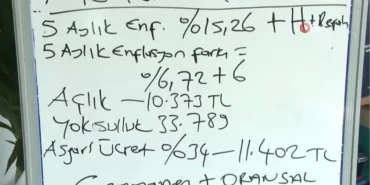 5 Aylık Enf. %15,26 + H + Refah
5 Aylık Enflasyon farkı =
%6,72 + 6
Açlık — 10.373 TL
Yoksulluk 33.789
Asgari Ücret %34 — 11.402 TL
+ ORANSAL